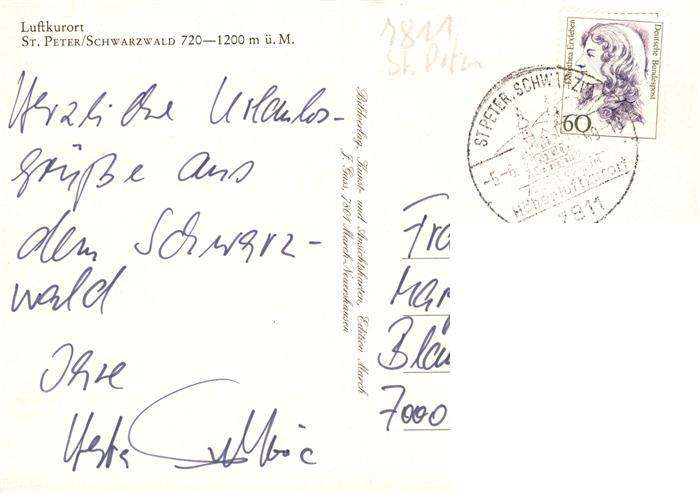 Luftkurort
ST. PETER/SCHWARZWALD 720—1200 m ü. M.
7811
St. Peter
Herzliche Urlaubs-
grüße aus
dem Schwarz-
wald
Ihre
Herta
Bildverlag, Kunst- und Ansichtskarten, Edition March
F. Gass, 7801 March-Neuershausen
Dorothea Erxleben
Deutsche Bundespost
60
ST PETER, SCHWARZW
-5.-6.
Höhenluftkurort
7811
Fra
Mar
Bla
7000